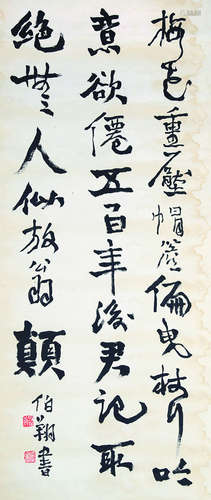 梅花重壓帽簷偏曳杖行吟
意欲僊五百年後君記取
絕無人似放翁顛
伯翔書